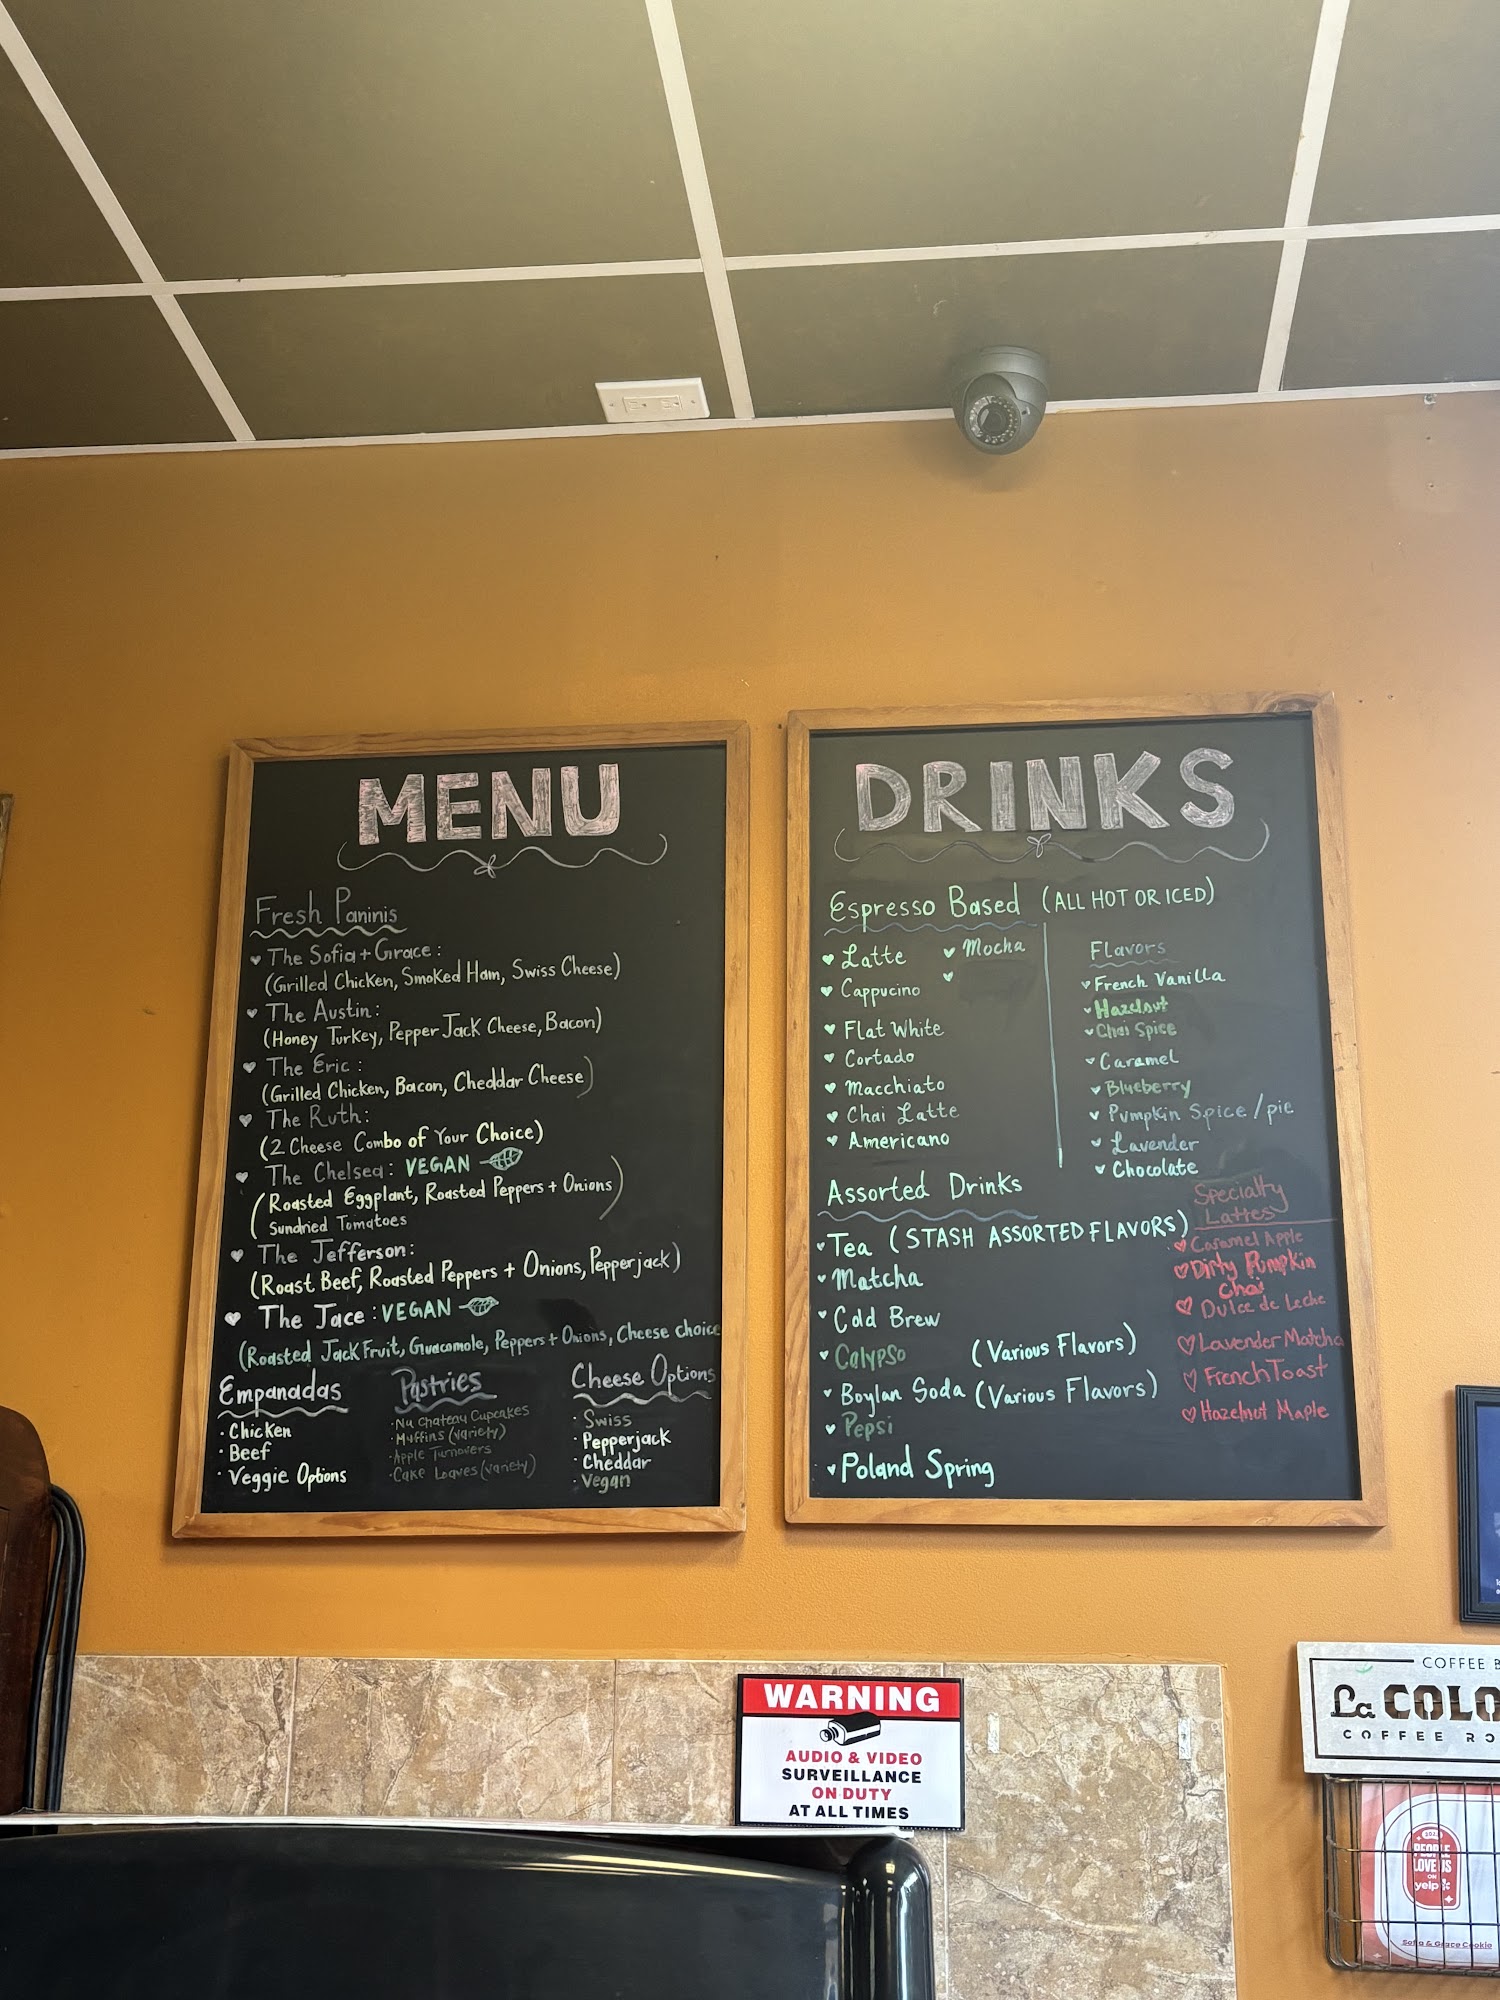 MENU
Fresh Paninis
The Sofia + Grace:
(Grilled Chicken, Smoked Ham, Swiss Cheese)
The Austin:
(Honey Turkey, Pepper Jack Cheese, Bacon)
The Eric:
(Grilled Chicken, Bacon, Cheddar Cheese)
The Ruth:
(2 Cheese Combo of Your Choice)
The Chelsea: VEGAN
(Roasted Eggplant, Roasted Peppers + Onions)
Sundried Tomatoes
The Jefferson:
(Roast Beef, Roasted Peppers + Onions, Pepperjack)
The Jace: VEGAN
(Roasted Jack Fruit, Guacamole, Peppers + Onions, Cheese choice
Empanadas
· Chicken
· Beef
· Veggie Options
Pastries
· Nu Chateau Cupcakes
· Muffins (variety)
· Apple Turnovers
· Cake Loaves (variety)
Cheese Options
· Swiss
· Pepperjack
· Cheddar
· Vegan
DRINKS
Espresso Based (ALL HOT OR ICED)
Latte
Cappucino
Flat White
Cortado
Macchiato
Chai Latte
Americano
Mocha
Flavors
French Vanilla
Hazelnut
Chai Spice
Caramel
Blueberry
Pumpkin Spice / pie
Lavender
Chocolate
Assorted Drinks
Tea (STASH ASSORTED FLAVORS)
Matcha
Cold Brew
Calypso (Various Flavors)
Boylan Soda (Various Flavors)
Pepsi
Poland Spring
Specialty
Lattes
Caramel Apple
Dirty Pumpkin
Chai
Dulce de Leche
Lavender Matcha
French Toast
Hazelnut Maple
WARNING
AUDIO & VIDEO
SURVEILLANCE
ON DUTY
AT ALL TIMES
COFFEE B
La COLO
COFFEE RO
PEOPLE
LOVE US
ON
yelp
Sofia & Grace Cookie